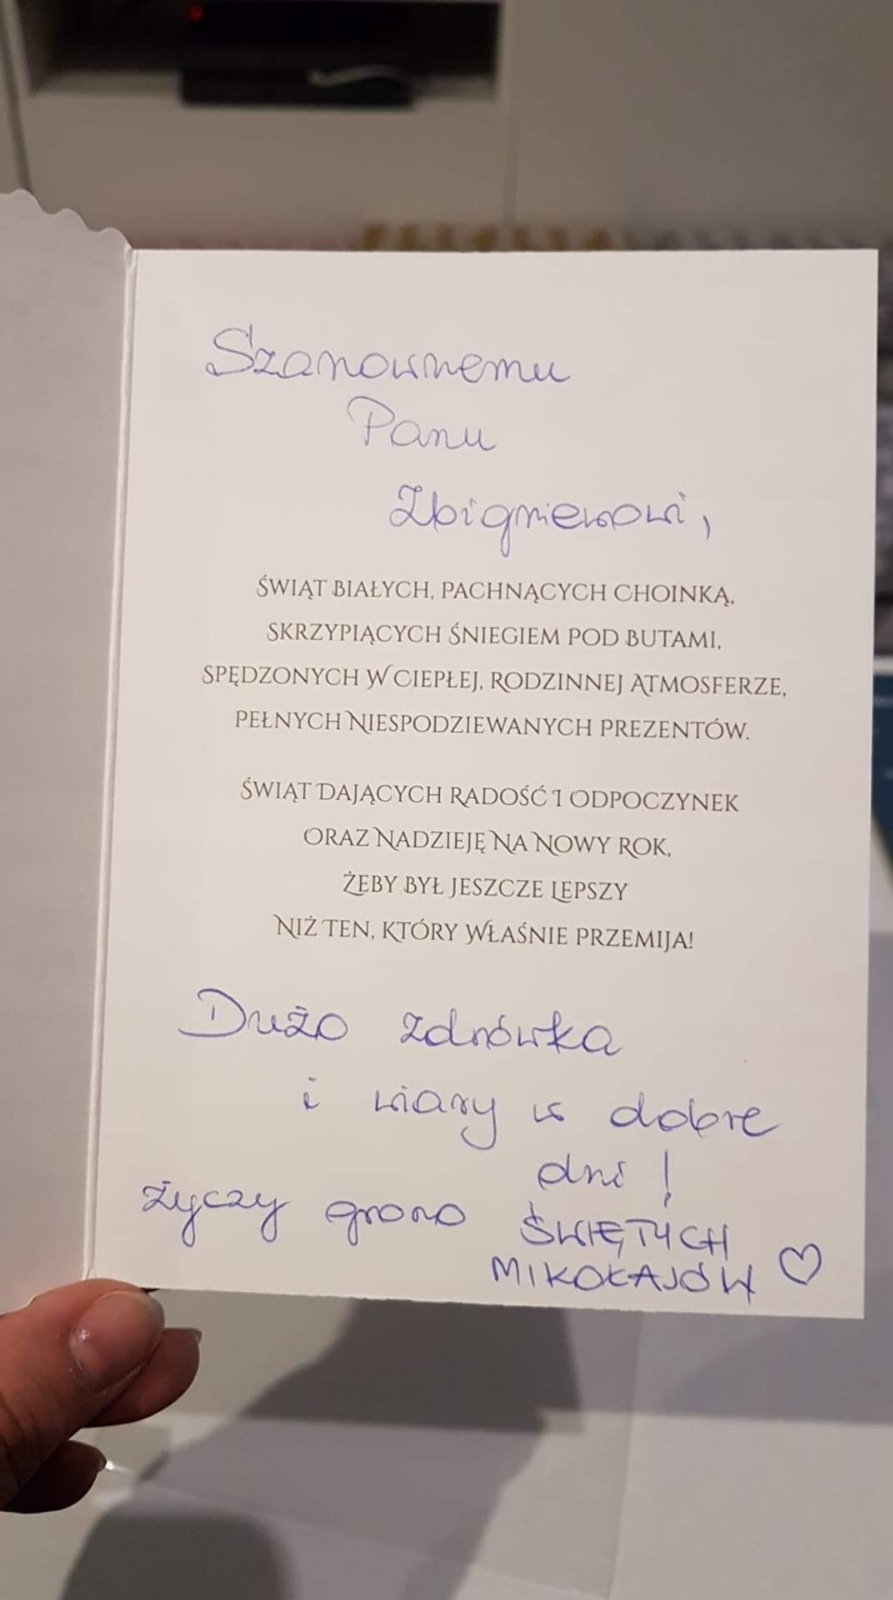 Szanownemu
Panu
Zbigniewowi,
ŚWIĄT BIAŁYCH, PACHNĄCYCH CHOINKĄ,
SKRZYPIĄCYCH ŚNIEGIEM POD BUTAMI,
SPĘDZONYCH W CIEPŁEJ, RODZINNEJ ATMOSFERZE,
PEŁNYCH NIESPODZIEWANYCH PREZENTÓW.
ŚWIĄT DAJĄCYCH RADOŚĆ I ODPOCZYNEK
ORAZ NADZIEJĘ NA NOWY ROK,
ŻEBY BYŁ JESZCZE LEPSZY
NIŻ TEN, KTÓRY WŁAŚNIE PRZEMIJA!
Dużo zdrówka
i wiary w dobre
dni!
życzy grono ŚWIĘTYCH
MIKOŁAJÓW ♡